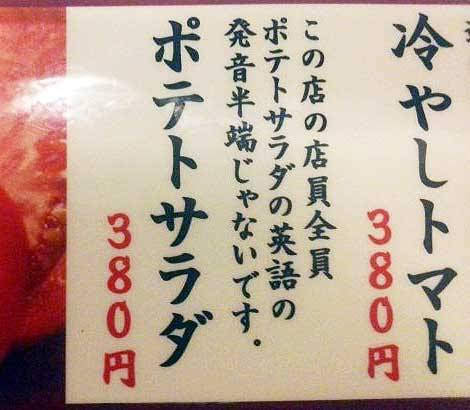 冷やしトマト
380円
この店の店員全員
ポテトサラダの英語の
発音半端じゃないです。
ポテトサラダ
380円